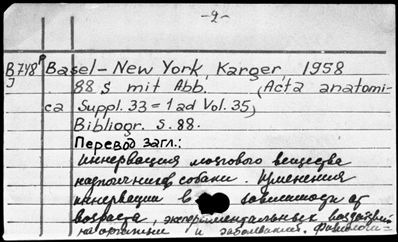 -2-
B748 Basel-New York, Karger, 1958
J 88 S mit Abb. (Acta anatomi-
ca Suppl. 33=1 ad Vol. 35)
Bibliogr. S. 88.
Перевод загл.:
Иннервация мозгового вещества
надпочечников собаки. Изменения
иннервации в зависимости от
возраста, экспериментальных воздействий
на организм и заболевания.